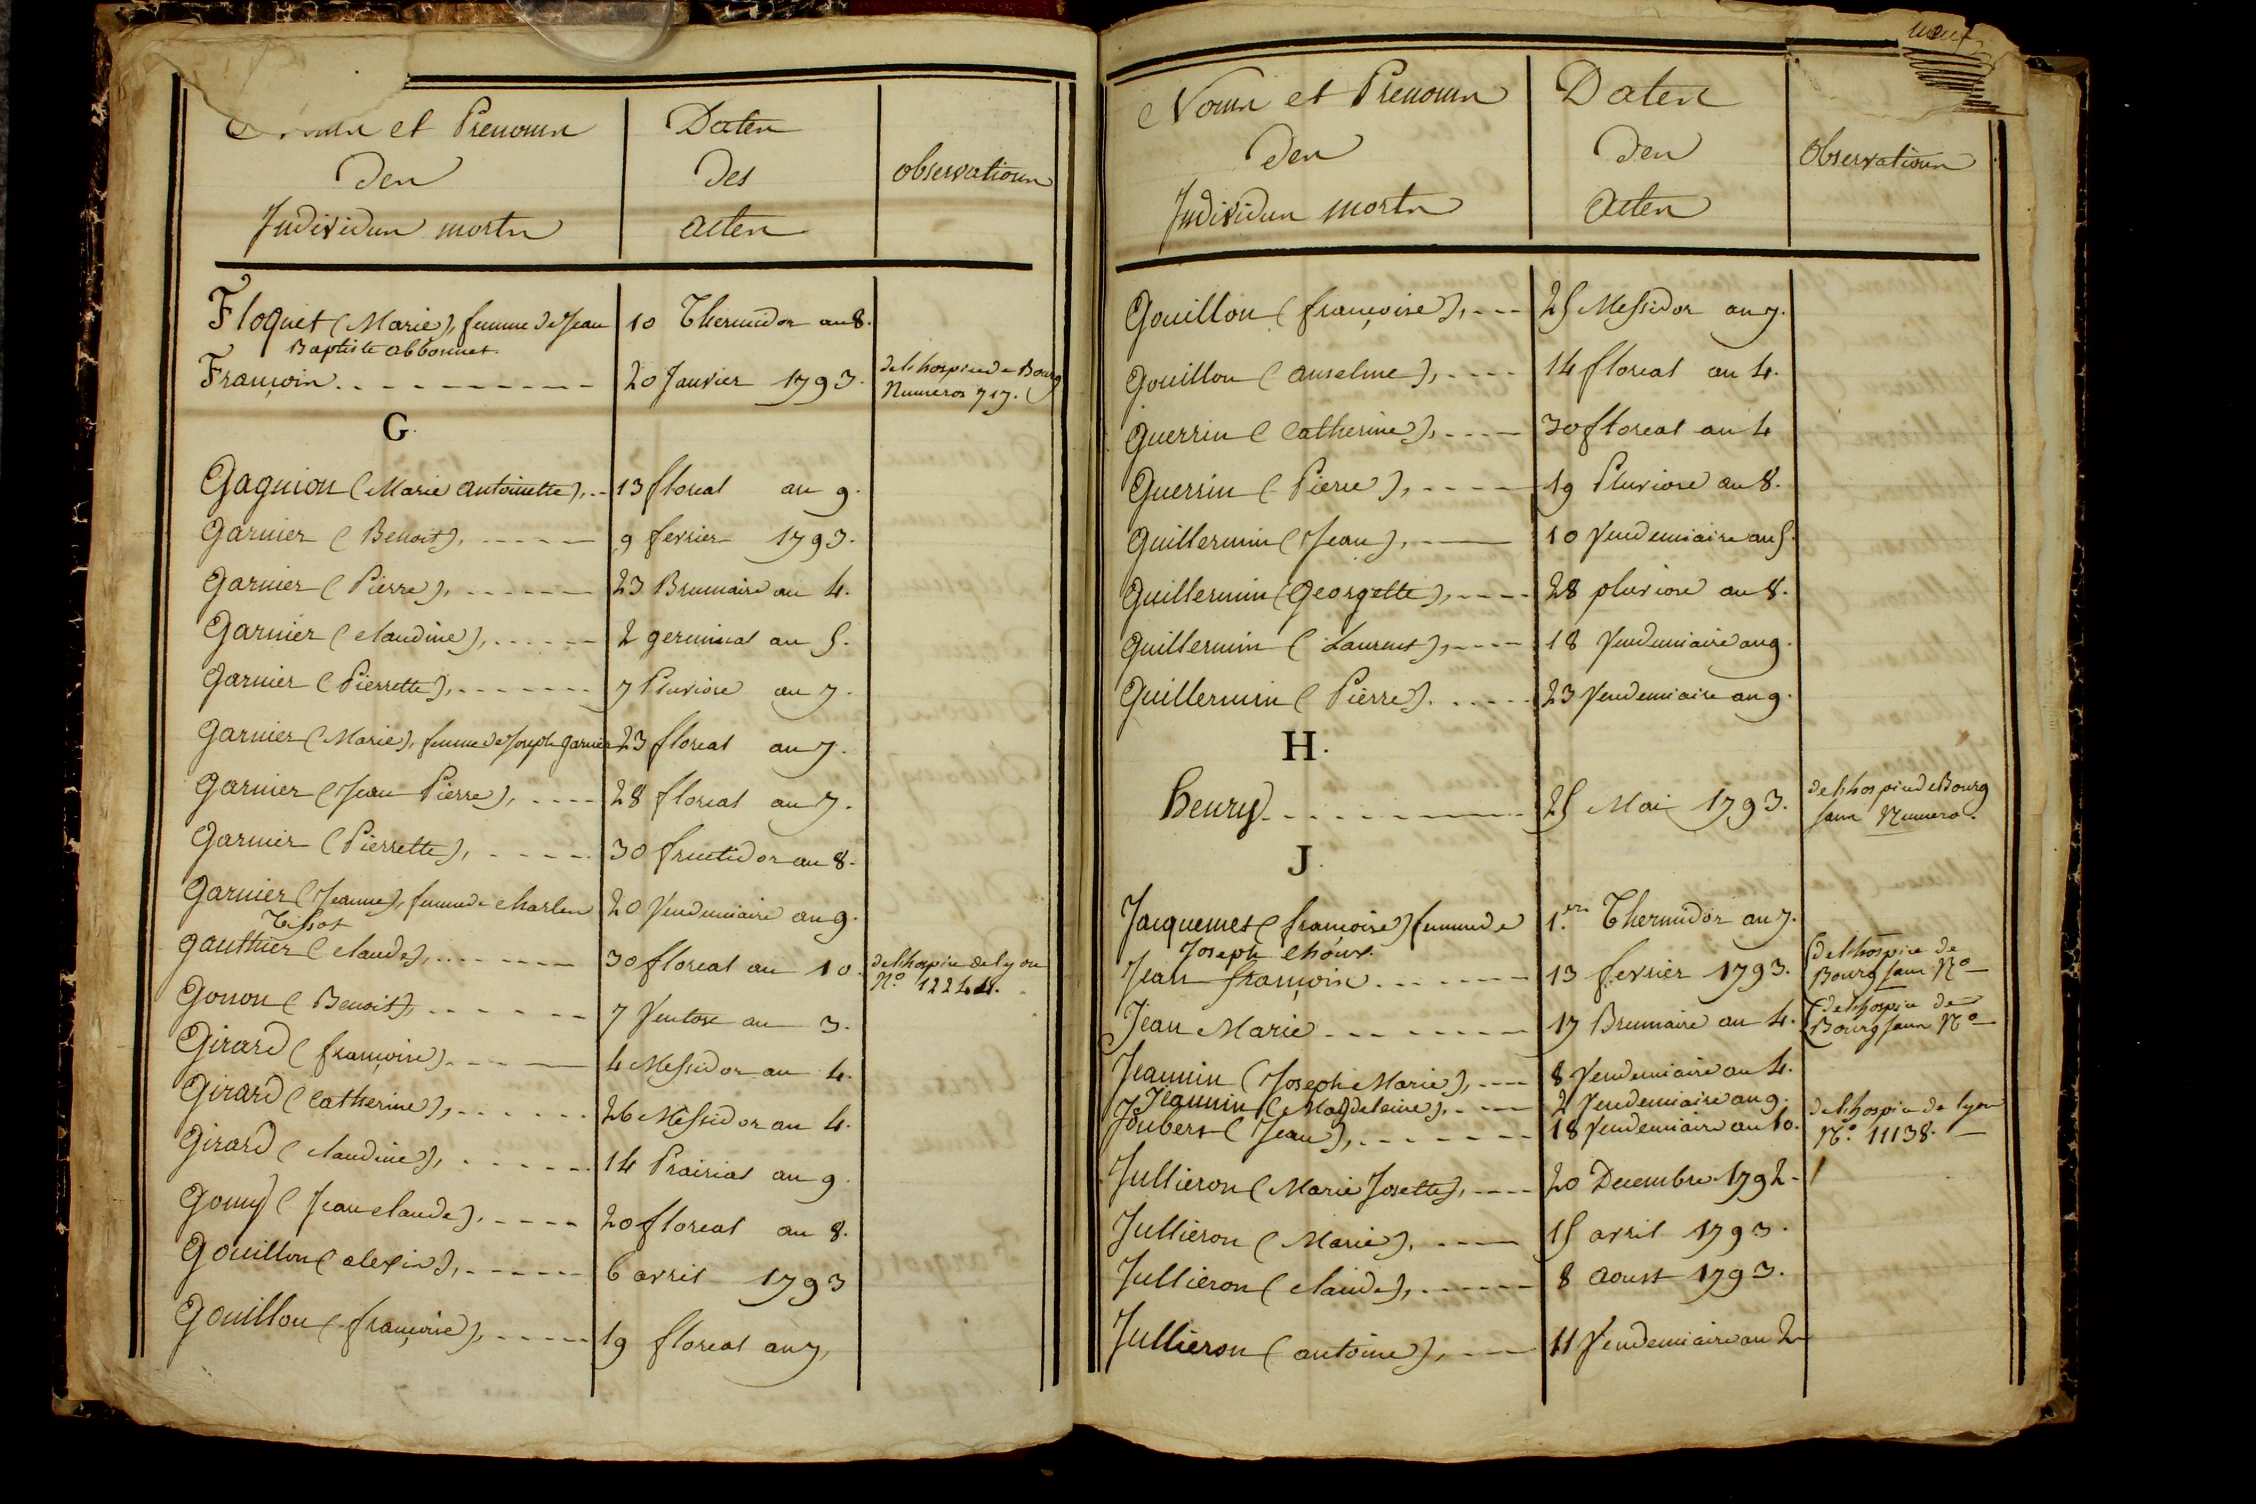 Noms et Prenoms
Dates
des
des
observations
Individus morts
actes
Floquet (Marie), femme de Jean
10 Thermidor an 8.
Baptiste abbonnet.
François
20 Janvier 1793.
de l'hospice de Bourg
Numeros 717.
G.
Gagnion (Marie antoinette),
13 floreal an 9.
Garnier (Benoit),
9 fevrier 1793.
Garnier (Pierre),
23 Brumaire an 4.
Garnier (claudine),
2 germinal an 5.
Garnier (Pierrette),
7 Pluviose an 7.
Garnier (Marie), femme de Joseph garnier
23 floreal an 7.
Garnier (Jean Pierre),
28 floreal an 7.
Garnier (Pierrette),
30 fructidor an 8.
Garnier (Jeanne), femme de charles
20 Vendemiaire an 9.
Tissot
gauthier (claude),
30 floreal an 10.
de l'hospice de lyon
N.º 12244.
Gonon (Benoit),
7 Ventose an 3.
Girard (françoise)
4 Messidor an 4.
Girard (catherine),
26 Messidor an 4.
Girard (claudine),
14 Prairial an 9.
Gomy (Jean claude),
20 floreal an 8.
Gouillon (alexis),
6 avril 1793
Gouillon (françoise),
19 floreal an 7,
neuf
Noms et Prenoms
Dates
des
des
Observations
Individus morts
actes
Gouillon (françoise),
25 Messidor an 7.
Gouillon (anselme),
14 floreal an 4.
Guerrin (Catherine),
30 floreal an 4
Guerrin (Pierre),
19 Pluviose an 8.
Guillermin (Jean),
10 Vendemiaire an 5.
Guillermin (Georgette),
28 pluviose an 8.
Guillermin (Laurent),
18 Vendemiaire an 9.
Guillermin (Pierre).
23 Vendemiaire an 9.
H.
henry
25 Mai 1793.
de l'hospice de Bourg
sans Numero.
J.
Jacquemet (françoise) femme de
1.er Thermidor an 7.
Joseph choux.
Jean françois
13 fevrier 1793.
de l'hospice de
Bourg sans Nº
Jean Marie
17 Brumaire an 4.
de l'hospice de
Bourg sans Nº
Jeannin (Joseph Marie),
8 Vendemiaire an 4.
Jeannin (Magdeleine),
2 Vendemiaire an 9.
Joubert (Jean),
18 Vendemiaire an 10.
de l'hospice de lyon
Nº. 11138.
Jullieron (Marie Josette),
20 Decembre 1792
Jullieron (Marie),
15 avril 1793.
Jullieron (claude),
8 aoust 1793.
Jullieron (antoine),
11 Vendemiaire an 2